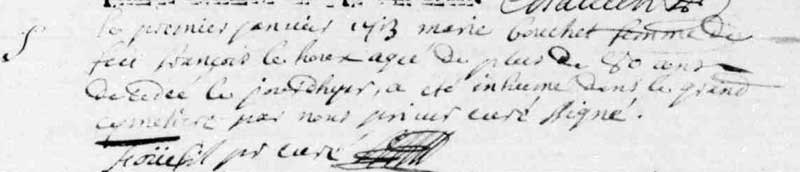 S
le premier janvier 1713 marie bouchet femme de
feu françois le houx agée de plus de 80 ans
decedée le jourdhyer, a été inhumé dans le grand
cymetiere par nous prieur curé signé.
pr curé